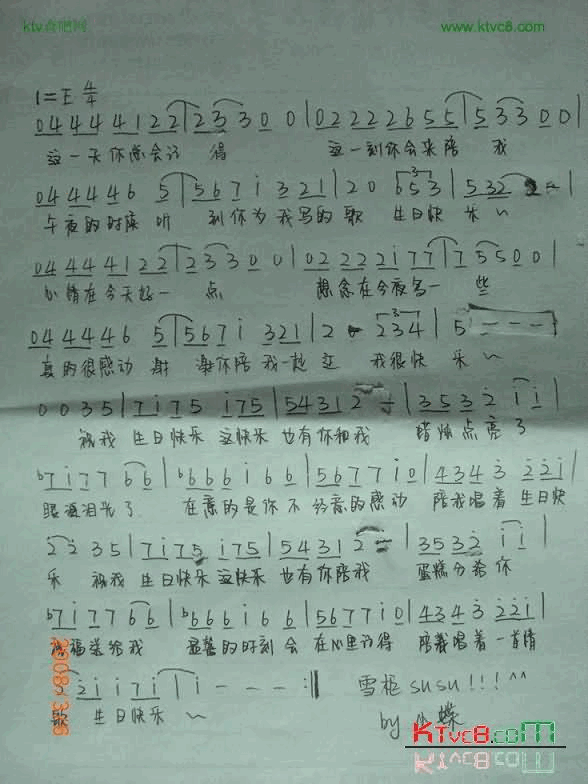 ktv合吧网 www.ktvc8.com
1=E 4/4
04 44 41 22 | 23 3 0 0 | 02 22 26 55 | 53 3 0 0 |
这一天你总会记 得 这一刻你会来陪 我
04 44 46 5 | 567i 321 | 20 653 | 532 - |
午夜的时候 听 到你为我写的歌 生日快 乐~
04 44 41 22 | 23 3 0 0 | 02 22 2i 77 | 75500 |
心情在今天起一 点 想念在今夜多一 些
04 44 46 5 | 567i 321 | 2 - 234 | 5 - - - |
真的很感动 谢 谢你陪我一起 我很快 乐~
0035 | 7i75 i75 | 54312 | 3532 ii |
祝我 生日快乐 这快乐 也有你和我 蜡烛点亮了
b7i77 66 | b666i66 | 5677i0 | 4343 22i |
眼泪泪光了 在意的是你不经意的感动 陪我唱着 生日快
2235 | 7i75 i75 | 54312 - | 3532 ii |
乐 祝我 生日快乐 这快乐 也有你陪我 蛋糕分给你
b7i77 66 | b666i66 | 5677i0 | 4343 22i |
福送给我 的时刻会 在心里记得 陪我唱着 一首情
2ii7i | i - - - :||
歌 生日快乐 ~
雪柜 susu!!! ^^
by 小蝶
2008/3/6
KTvc8.com